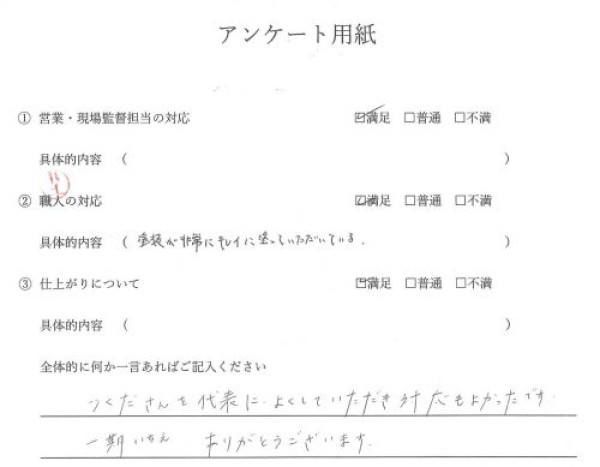 アンケート用紙
① 営業・現場監督担当の対応 ☑満足 □普通 □不満
具体的内容 ( )
② 職人の対応 ☑満足 □普通 □不満
具体的内容 ( 塗装が非常にキレイに塗っていただいている. )
③ 仕上がりについて ☑満足 □普通 □不満
具体的内容 ( )
全体的に何か一言あればご記入ください
つくださんを代表に よくしていただき対応もよかったです.
一期いちえ ありがとうございます.